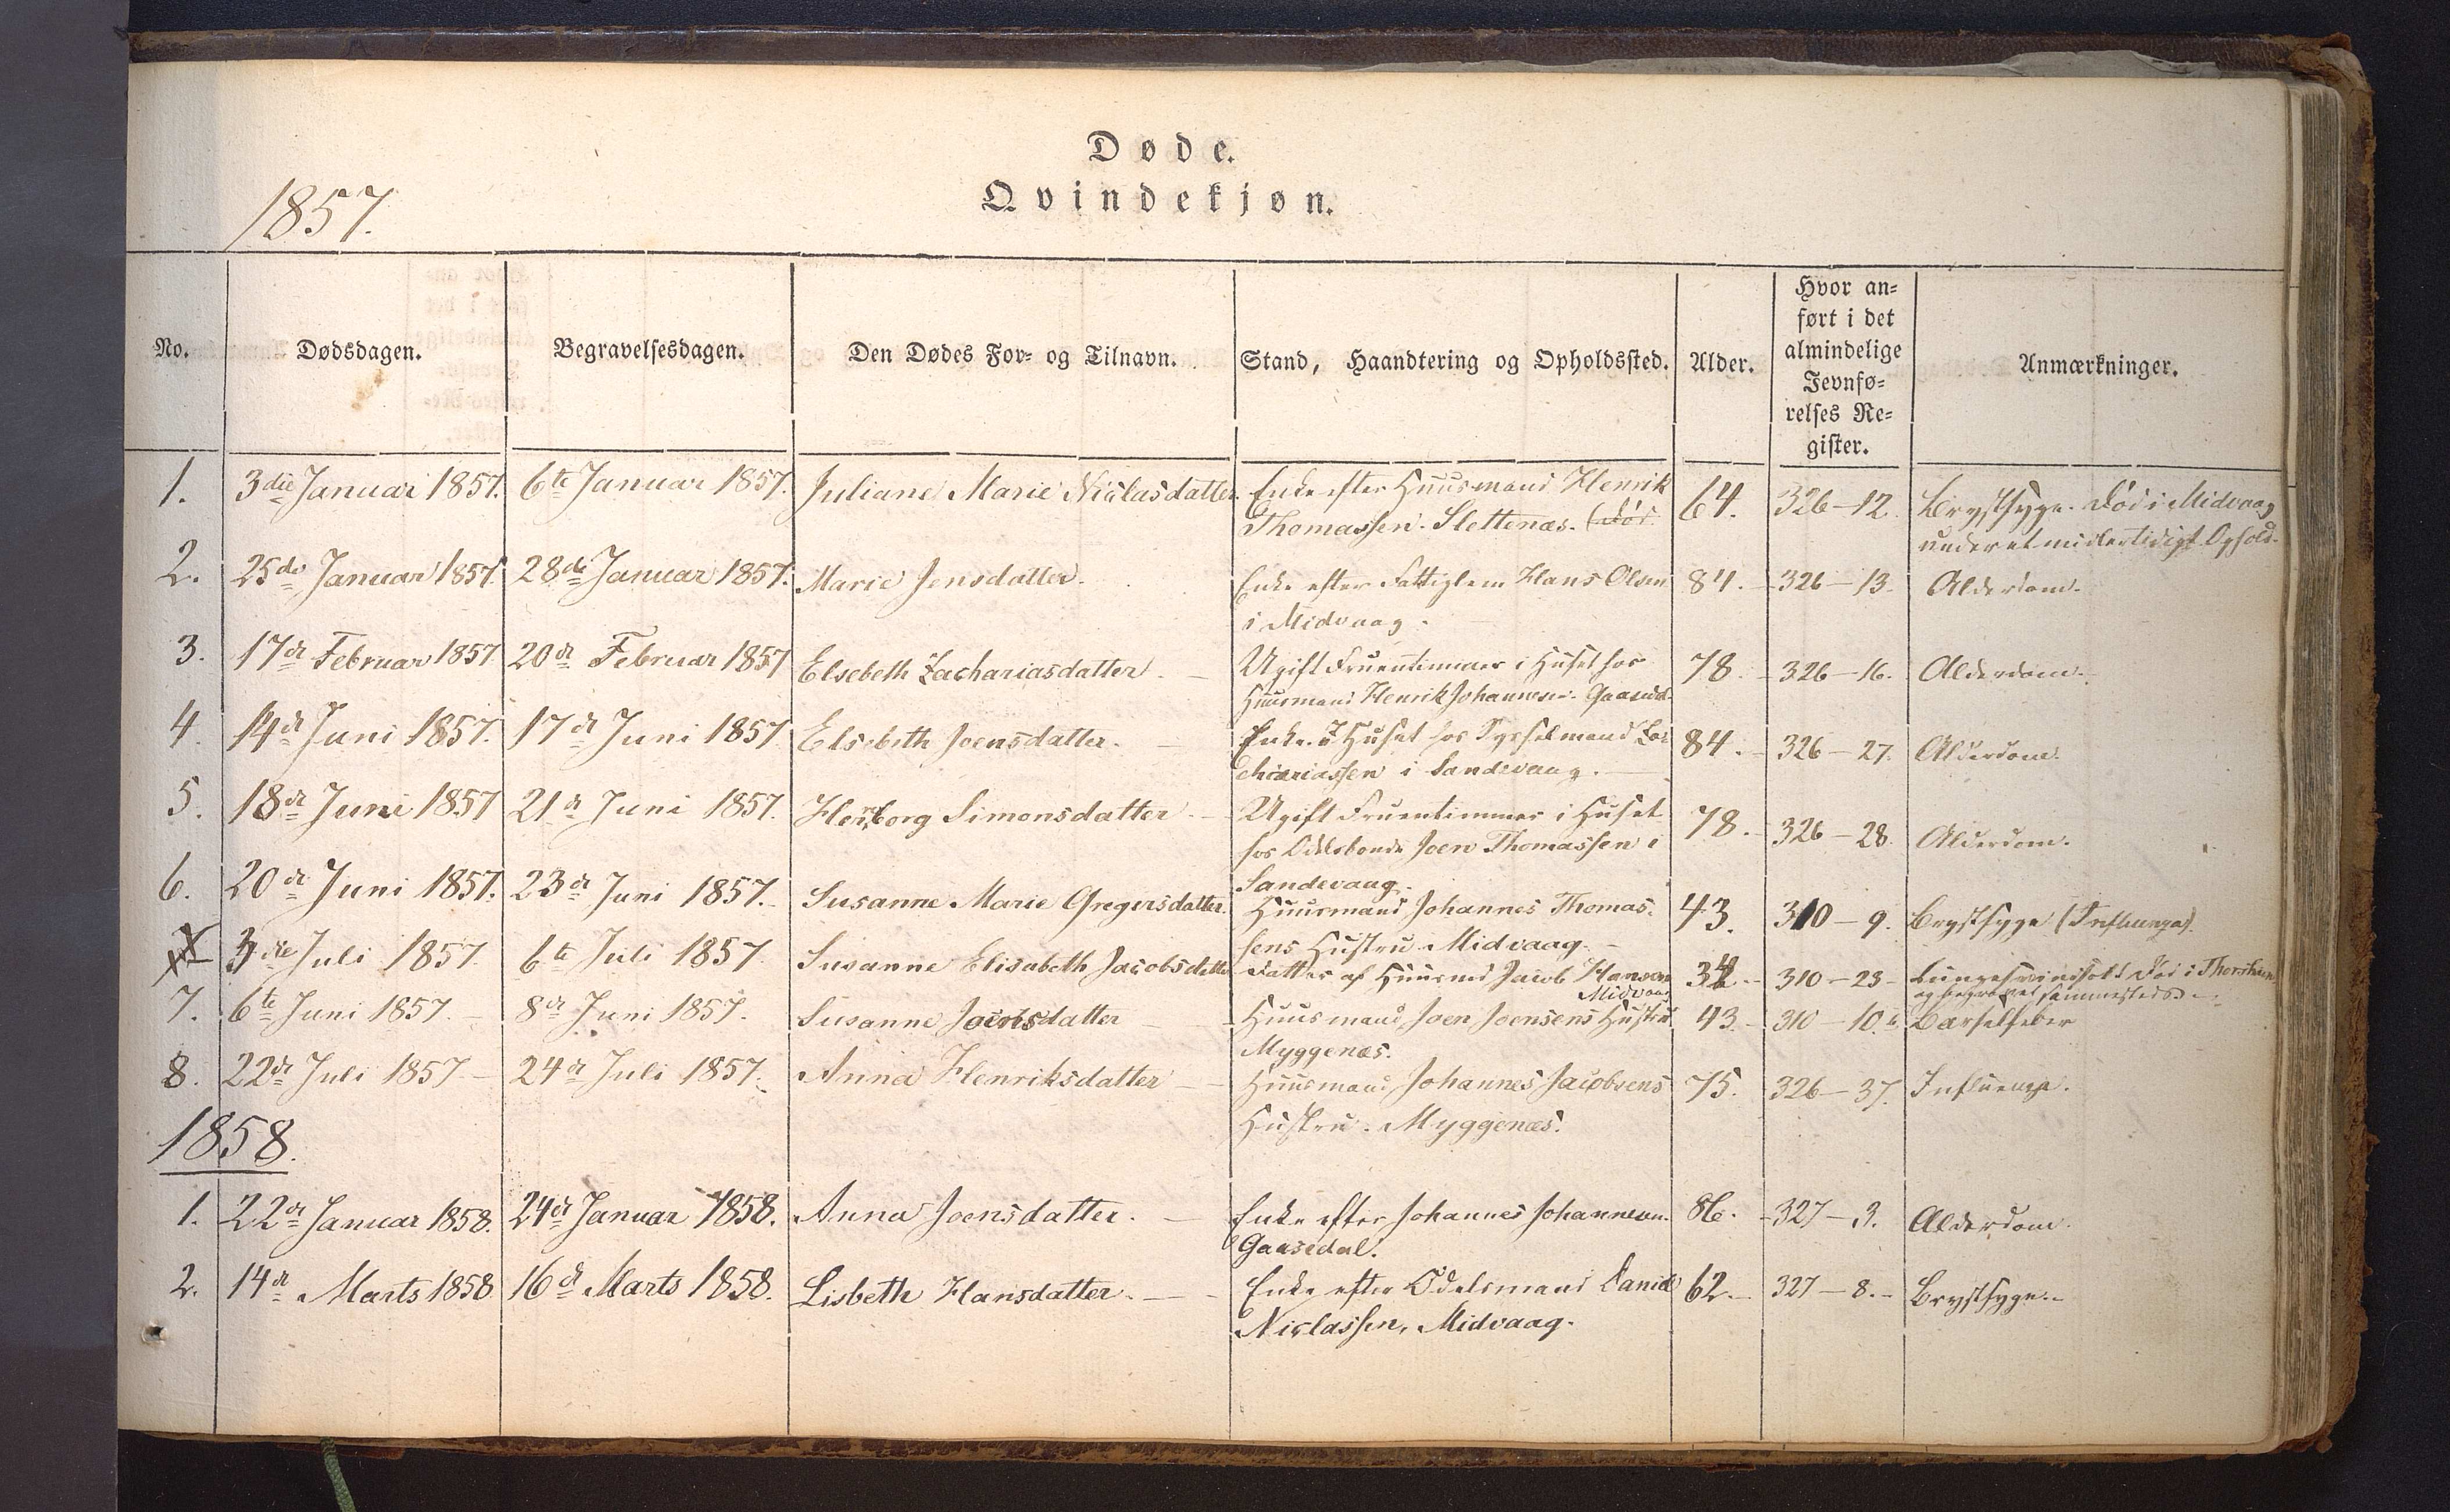 Døde.
Qvindekjøn.
1857.
No.
Dødsdagen.
Begravelsesdagen.
Den Dødes For- og Tilnavn.
Stand, Haandtering og Opholdssted.
Alder.
Hvor an-
ført i det
almindelige
Jevnfø-
relses Re-
gister.
Anmærkninger.
1. 3die Januar 1857. 6te Januar 1857. Juliane Marie Niclasdatter. Enke efter Huusmand Henrik 64. 326-12. Brystsyge. Død i Midvaag
Thomassen. Slettenæs. (Død under et midlertidigt Ophold.
2. 25de Januar 1857. 28de Januar 1857. Marie Jensdatter. Enke efter Fattiglem Hans Olsen 84. 326-13. Alderdom.
i Midvaag.
3. 17de Februar 1857 20de Februar 1857 Elsebeth Zachariasdatter. Ugift Fruentimmer i Huset hos 78. 326-16. Alderdom.
Huusmand Henrik Johannesen. Gaasedal.
4. 14de Juni 1857. 17de Juni 1857 Elsebeth Joensdatter. Enke. I Huset hos Sysselmand Za- 84. 326-27. Alderdom.
chariassen i Sandevaag.
5. 18de Juni 1857 21de Juni 1857. Herborg Simonsdatter. Ugift Fruentimmer i Huset 78. 326-28. Alderdom.
hos Odelsbonde Joen Thomassen i
Sandevaag.
6. 20de Juni 1857. 23de Juni 1857. Susanne Marie Gregersdatter. Huusmand Johannes Thomas- 43. 310-9. Brystsyge (Influenza).
sens Hustru Midvaag.
3die Juli 1857. 6te Juli 1857. Susanne Elisabeth Jacobsdatter Datter af Huusmd Jacob Hansen 310-23 Lungesvindsot. Død i Thorshavn
Midvaag og begravet sammesteds.
7. 6te Juni 1857. 8de Juni 1857. Susanne Joensdatter Huusmand Joen Joensens Hustru 43. 310-10. Barselfeber
Myggenæs.
8. 22de Juli 1857 24de Juli 1857. Anna Henriksdatter Huusmand Johannes Jacobsens 75. 326-37. Influenza.
Hustru. Myggenæs.
1858.
1. 22de Januar 1858. 24de Januar 1858. Anna Joensdatter. Enke efter Johannes Johannesen. 86. 327-3. Alderdom.
Gaasedal.
2. 14de Marts 1858 16de Marts 1858. Lisbeth Hansdatter. Enke efter Odelsmand Daniel 62. 327-8. Brystsyge.
Niclassen, Midvaag.